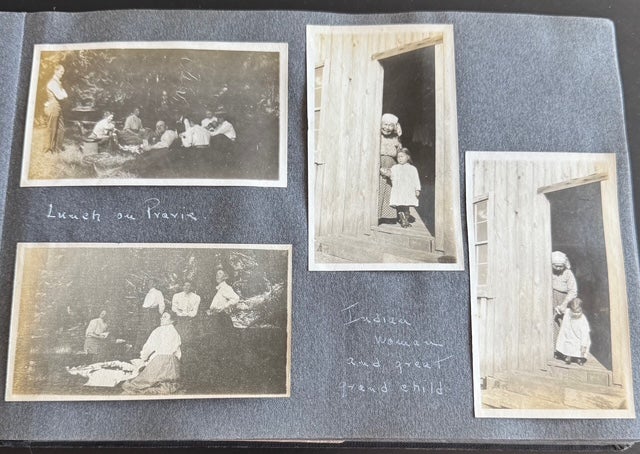 Lunch on Pravie
Indian
woman
and great
grand child